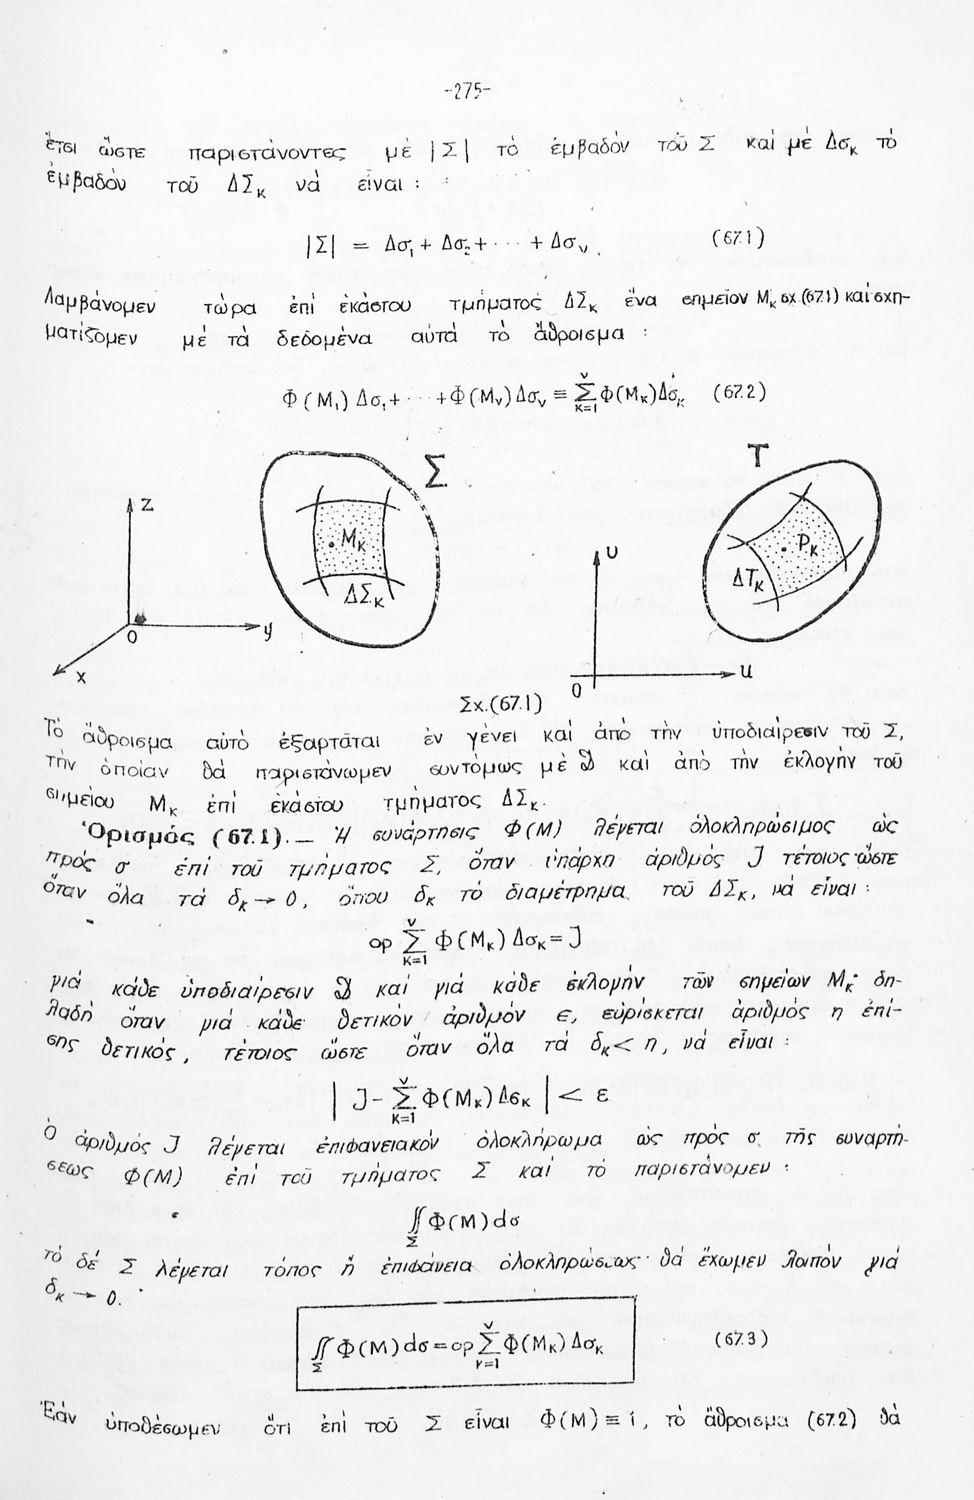 -275-
ἔτσι ὥστε παριστάνοντες μέ |Σ| τὸ ἐμβαδὸν τοῦ Σ καί μέ Δσκ τὸ
ἐμβαδὸν τοῦ ΔΣκ νά εἶναι :
|Σ| = Δσ₁ + Δσ₂ + ··· + Δσν . (67.1)
Λαμβάνομεν τώρα ἐπί ἑκάστου τμήματος ΔΣκ ἕνα σημεῖον Μκ σχ.(67.1) καί σχη-
ματίζομεν μέ τά δεδομένα αὐτά τὸ ἄθροισμα :
Φ(Μ₁) Δσ₁ + ··· + Φ(Μν) Δσν ≡ Σ_{κ=1}^{ν} Φ(Μκ) Δσκ (67.2)
Σ
T
z
Mκ
Pκ
υ
ΔTκ
ΔΣκ
0
y
x
u
0
Σχ.(67.1)
Τὸ ἄθροισμα αὐτὸ ἐξαρτᾶται ἐν γένει καί ἀπό τήν ὑποδιαίρεσιν τοῦ Σ,
τήν ὁποίαν θά παριστάνωμεν συντόμως μέ 𝔇 καί ἀπὸ τήν ἐκλογήν τοῦ
σημείου Μκ ἐπί ἑκάστου τμήματος ΔΣκ.
Ὁρισμός (67.1).— Ἡ συνάρτησις Φ(Μ) λέγεται ὁλοκληρώσιμος ὡς
πρός σ ἐπί τοῦ τμήματος Σ, ὅταν ὑπάρχη ἀριθμὸς J τέτοιος ὥστε
ὅταν ὅλα τά δκ → 0, ὅπου δκ τὸ διαμέτρημα τοῦ ΔΣκ, νά εἶναι :
ορ Σ_{κ=1}^{ν} Φ(Μκ) Δσκ = J
γιά κάθε ὑποδιαίρεσιν 𝔇 καί γιά κάθε ἐκλογήν τῶν σημείων Μκ· δη-
λαδή ὅταν γιά κάθε θετικὸν ἀριθμόν ϵ, εὑρίσκεται ἀριθμὸς η ἐπί-
σης θετικὸς, τέτοιος ὥστε ὅταν ὅλα τά δκ < η, νά εἶναι :
| J - Σ_{κ=1}^{ν} Φ(Μκ) Δσκ | < ε
Ὁ ἀριθμὸς J λέγεται ἐπιφανειακόν ὁλοκλήρωμα ὡς πρὸς σ τῆς συναρτή-
σεως Φ(Μ) ἐπί τοῦ τμήματος Σ καί τὸ παριστάνομεν :
∬_Σ Φ(Μ) dσ
τὸ δέ Σ λέγεται τόπος ἤ ἐπιφάνεια ὁλοκληρώσεως· θά ἔχωμεν λοιπόν γιά
δκ → 0.
∬_Σ Φ(Μ) dσ = ορ Σ_{κ=1}^{ν} Φ(Μκ) Δσκ (67.3)
Ἐάν ὑποθέσωμεν ὅτι ἐπί τοῦ Σ εἶναι Φ(Μ) ≡ 1, τὸ ἄθροισμα (67.2) θά